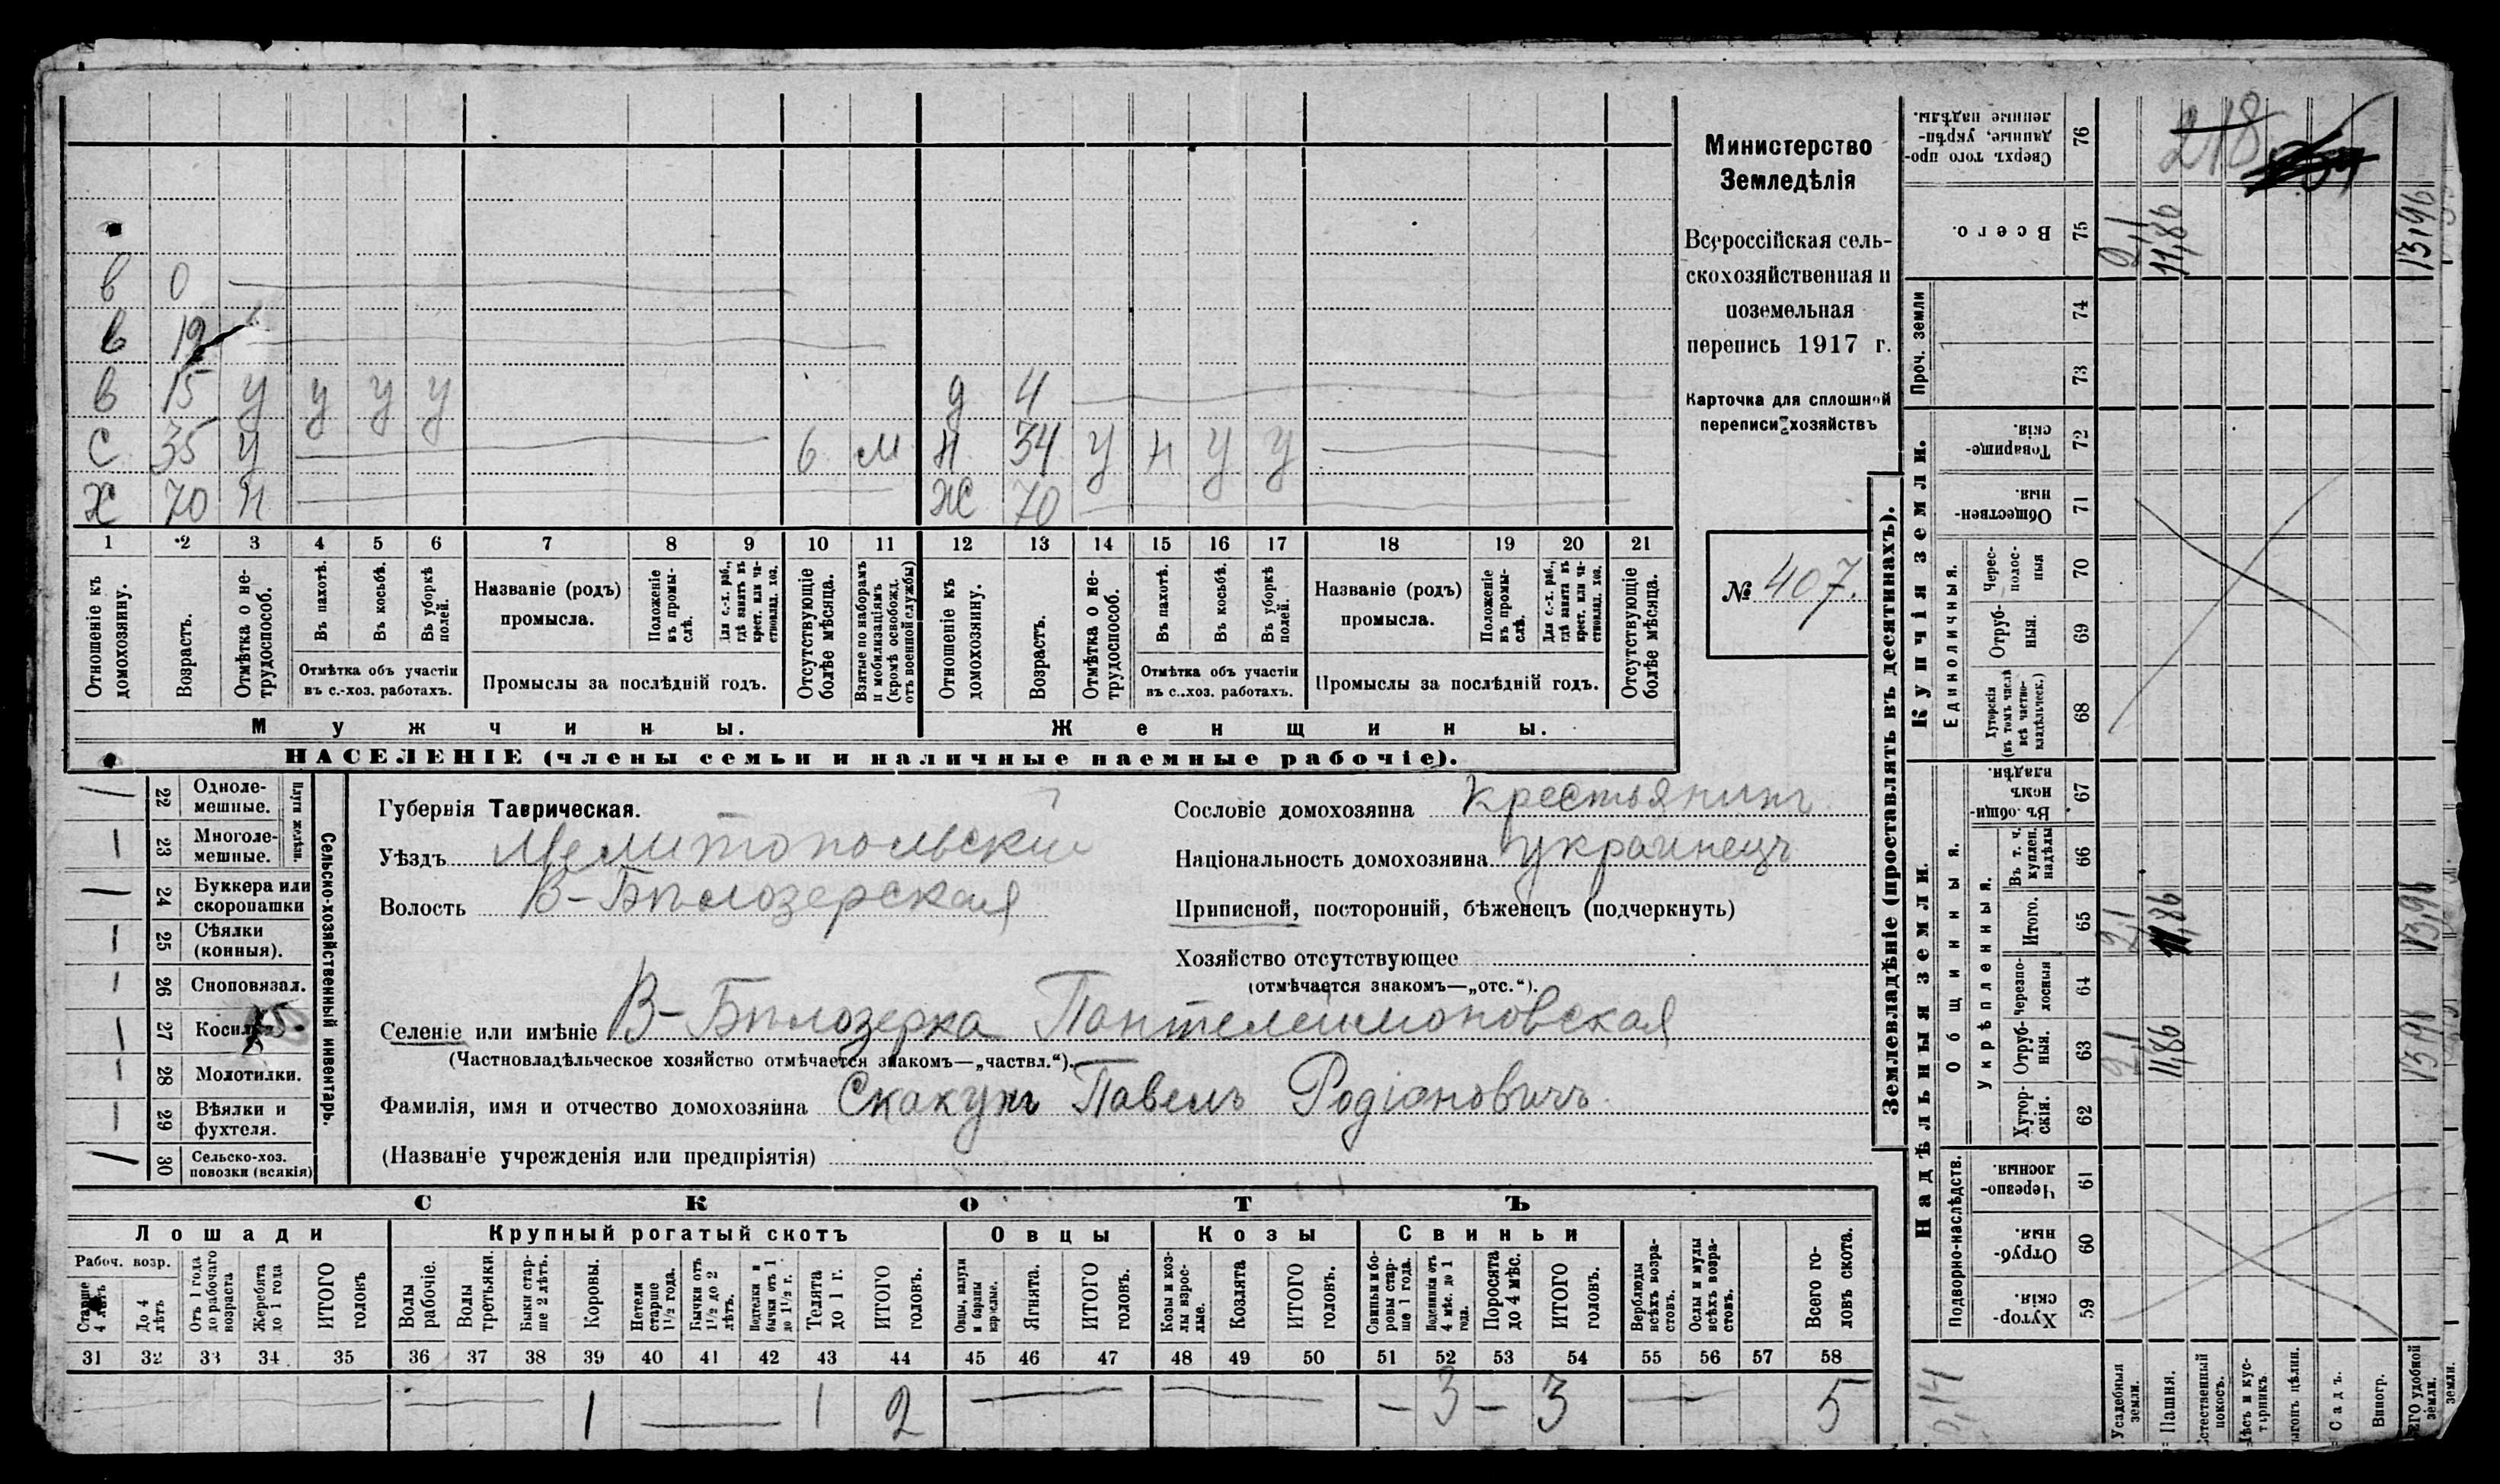 Министерство
Земледѣлія
Всероссійская сель-
скохозяйственная и
поземельная
перепись 1917 г.
Карточка для сплошной
переписи хозяйствъ
№ 407.
в 0
в 19
в 15 У У У У д 4
С 35 У 6 м Н 34 У Н У У
Х 70 Н Ж 70
1 2 3 4 5 6 7 8 9 10 11 12 13 14 15 16 17 18 19 20 21
Отношеніе къ домохозяину.
Возрастъ.
Отмѣтка о не-трудоспособ.
Въ пахотѣ.
Въ косьбѣ.
Въ уборкѣ полей.
Отмѣтка объ участіи
въ с.-хоз. работахъ.
Названіе (родъ)
промысла.
Положеніе въ промы-слѣ.
Для с.-х. раб., гдѣ занятъ въ крест. или ча-стновлад. хоз.
Промыслы за послѣдній годъ.
Отсутствующіе болѣе мѣсяца.
Взятые по наборамъ и мобилизаціямъ (кромѣ освобожд. отъ военной службы)
Отношеніе къ домохозяину.
Возрастъ.
Отмѣтка о не-трудоспособ.
Въ пахотѣ.
Въ косьбѣ.
Въ уборкѣ полей.
Отмѣтка объ участіи
въ с.-хоз. работахъ.
Названіе (родъ)
промысла.
Положеніе въ промы-слѣ.
Для с.-х. раб., гдѣ занята въ крест. или ча-стновлад. хоз.
Промыслы за послѣдній годъ.
Отсутствующіе болѣе мѣсяца.
Мужчины.
Женщины.
НАСЕЛЕНІЕ (члены семьи и наличные наемные рабочіе).
Сельско-хозяйственный инвентарь.
Плуги желѣзн.
22 Одноле-мешные.
23 Многоле-мешные.
24 Буккера или скоропашки
25 Сѣялки (конныя).
26 Сноповязал.
27 Косилки
28 Молотилки.
29 Вѣялки и фухтеля.
30 Сельско-хоз. повозки (всякія)
Губернія Таврическая.
Уѣздъ Мелитопольскій
Волость В-Бѣлозерская
Сословіе домохозяина крестьянинъ
Національность домохозяина украинецъ
Приписной, посторонній, бѣженецъ (подчеркнуть)
Хозяйство отсутствующее
(отмѣчается знакомъ—„отс.“).
Селеніе или имѣніе В-Бѣлозерка Пантелеимоновская
(Частновладѣльческое хозяйство отмѣчается знакомъ—„частвл.“).
Фамилія, имя и отчество домохозяина Скакунъ Павелъ Родіановичъ
(Названіе учрежденія или предпріятія)
СКОТЪ
Лошади
Крупный рогатый скотъ
Овцы
Козы
Свиньи
Рабоч. возр.
Старше 4 лѣтъ
До 4 лѣтъ
Отъ 1 года до рабочаго возраста
Жеребята до 1 года
ИТОГО головъ
Волы рабочіе.
Волы третьяки.
Быки стар-ше 2 лѣтъ.
Коровы.
Нетели старше 1½ года.
Бычки отъ 1½ до 2 лѣтъ.
Подтелки и бычки отъ 1 до 1½ г.
Телята до 1 г.
ИТОГО головъ.
Овцы, валухи и бараны взрослые.
Ягнята.
ИТОГО головъ.
Козы и коз-лы взрос-лые.
Козлята
ИТОГО головъ.
Свиньи и бо-ровы стар-ше 1 года.
Подсвинки отъ 4 мѣс. до 1 года.
Поросята до 4 мѣс.
ИТОГО головъ.
Верблюды всѣхъ возра-стовъ.
Ослы и мулы всѣхъ возра-стовъ.
Всего го-ловъ скота.
31 32 33 34 35 36 37 38 39 40 41 42 43 44 45 46 47 48 49 50 51 52 53 54 55 56 57 58
1 1 2 — — — 3 — 3 — 5
Землевладѣніе (проставлять въ десятинахъ).
Надѣльныя земли.
Подворно-наслѣдств.
Хутор-скія. 59
Отруб-ныя. 60
Черезпо-лосныя. 61
Общинныя.
Укрѣпленныя.
Хутор-скія. 62
Отруб-ныя. 63 2,1 11,86 13,96
Черезпо-лосныя 64
Итого. 65 2,1 11,86 13,96
Въ т. ч. куплен. надѣлы 66
Въ общин-номъ владѣн. 67
Купчія земли.
Единоличныя.
Хуторскія (въ томъ числѣ всѣ частно-владѣльческ.) 68
Отруб-ныя. 69
Черес-полос-ныя 70
Обществен-ныя. 71
Товарище-скія. 72
Проч. земли
73
74
Всего. 75 2,1 11,86 13,96
Сверхъ того про-данные, укрѣп-ленные надѣлы. 76
218
Усадебныя земли.
Пашня.
Естественный покосъ.
Лѣсъ и кус-тарникъ.
Садъ.
Виногр.
ВСЕГО удобной земли.
земли.